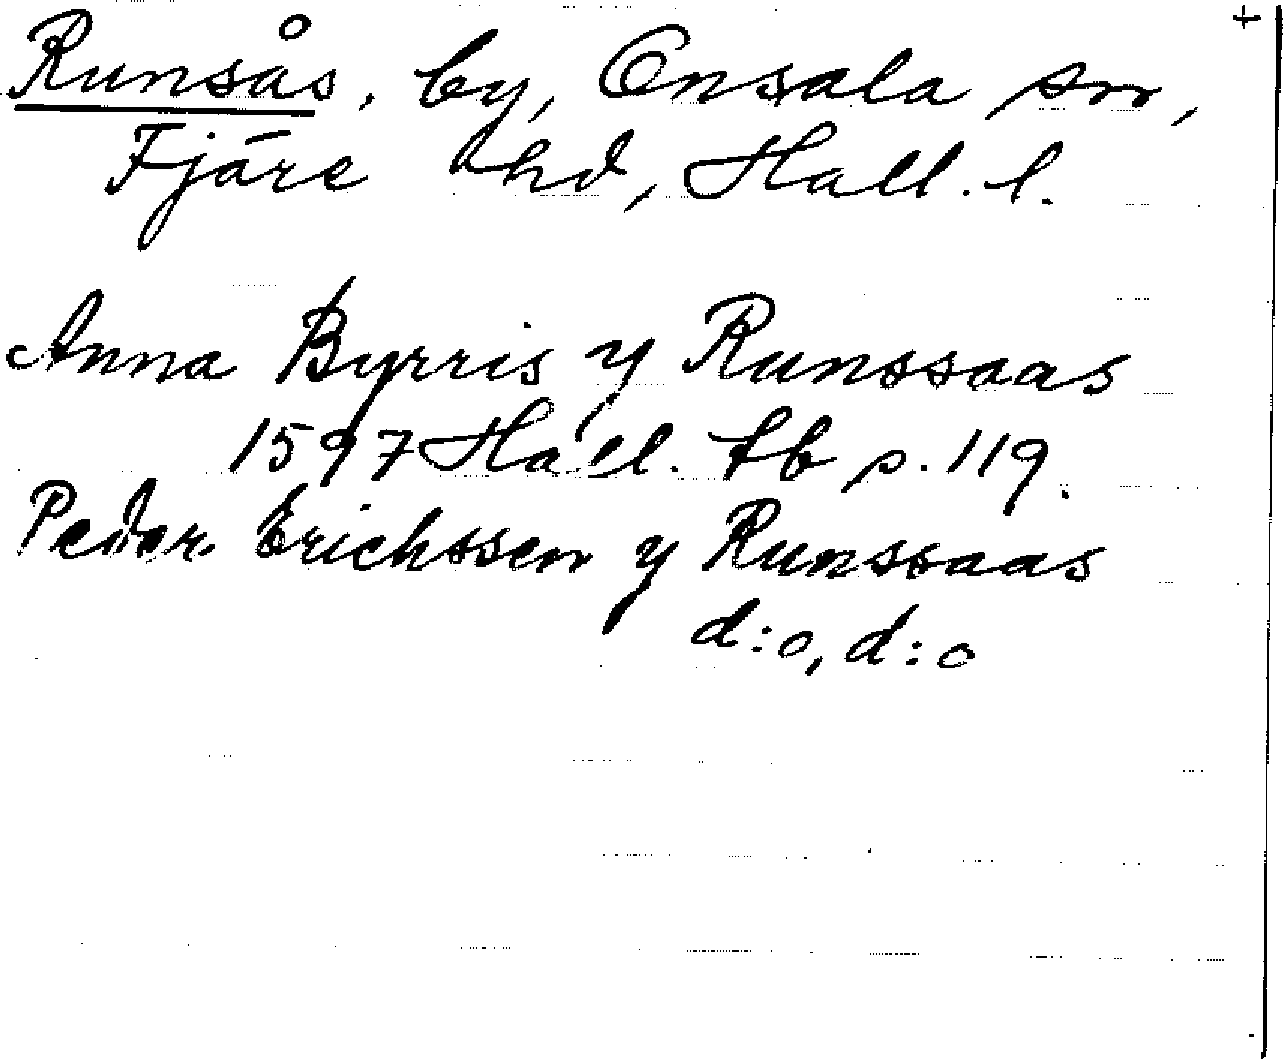 Runsås, by, Onsala sn,
Fjäre hd, Hall. l.
Anna Byrris y Runssaas
1597 Hall. tb p. 119.
Peder Erichssen y Runssaas
d:o, d:o